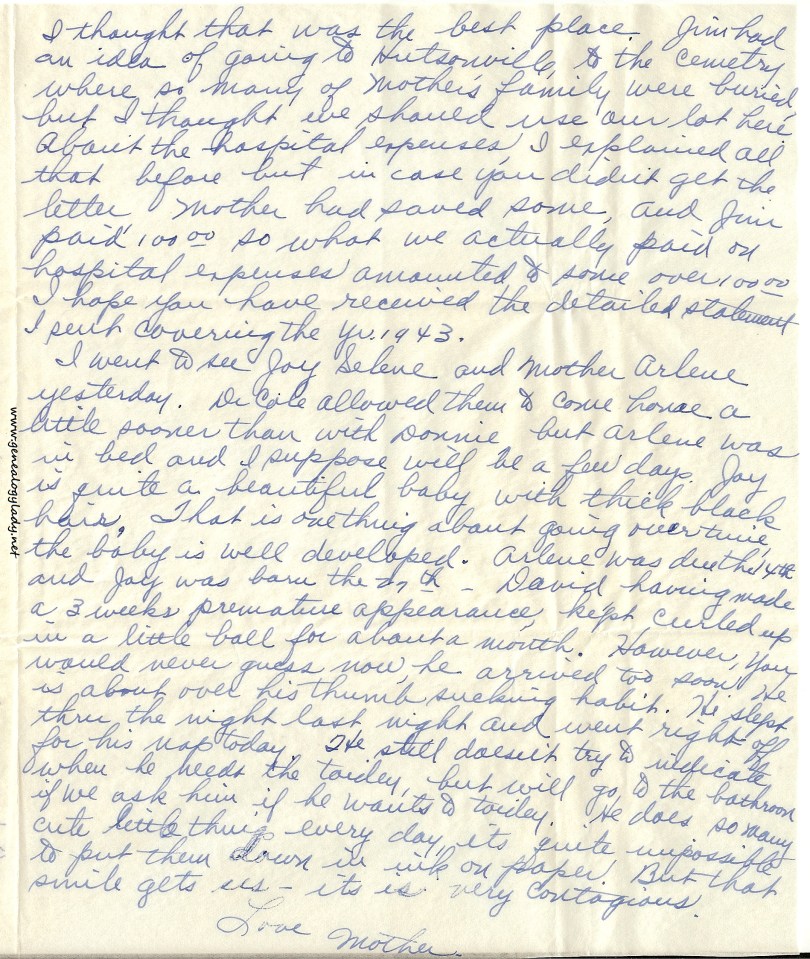 I thought that was the best place. Jim had
an idea of going to Hutsonville, to the cemetry
where so many of Mother's family were buried,
but I thought we should use our lot here.
About the hospital expenses, I explained all
that before but in case you didn't get the
letter Mother had saved some, and Jim
paid 100 00 so what we actually paid on
hospital expenses amounted to some over 100 00
I hope you have received the detailed statement
I sent covering the yr. 1943.
I went to see Joy Selene and Mother Arlene
yesterday. Dr Cole allowed them to come home a
little sooner than with Donnie but Arlene was
in bed and I suppose will be a few days. Joy
is quite a beautiful baby with thick black
hair. That is one thing about going overtime,
the baby is well developed. Arlene was due the 14th
and Joy was born the 27th - David having made
a 3 weeks premature appearance, kept curled up
in a little ball for about a month. However, you
would never guess now, he arrived too soon. He
is about over his thumb sucking habit. He slept
thru the night last night and went right off
for his nap today. He still doesn't try to indicate
when he needs the toidey, but will go to the bathroom
if we ask him if he wants to toidey. He does so many
cute little things every day, its quite impossible
to put them down in ink on paper. But that
smile gets us - its is very contagious.
Love
Mother.
www.genealogylady.net